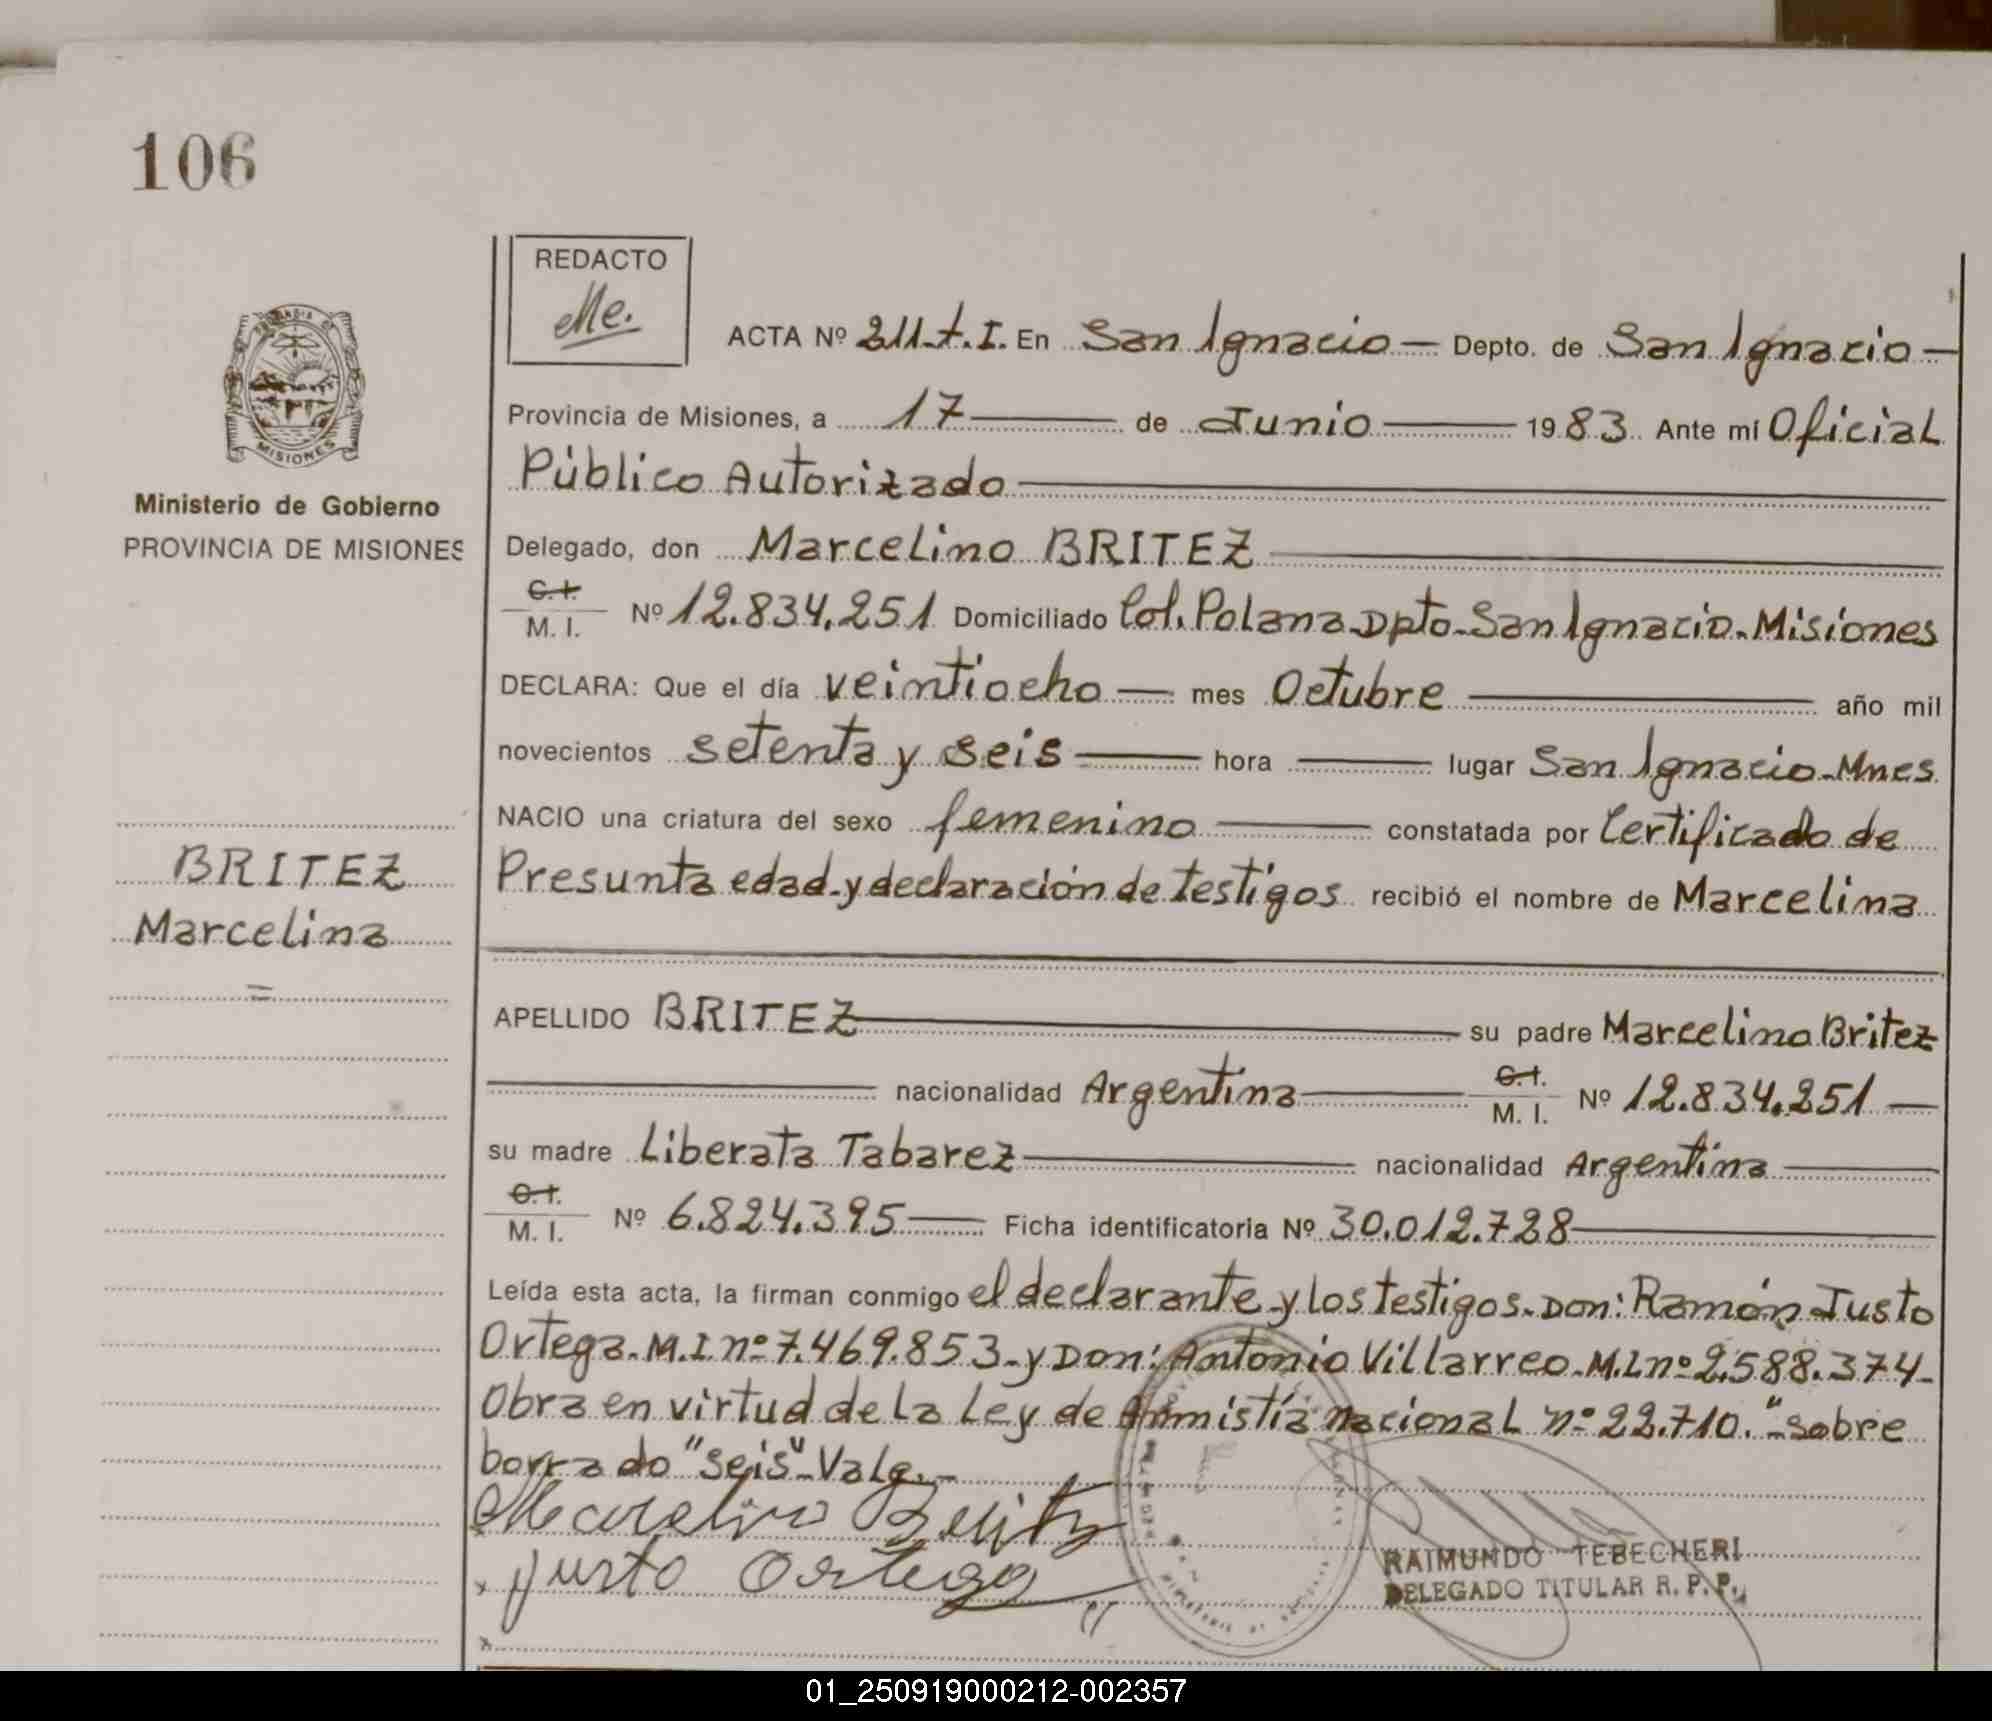 106
REDACTO
Me.
ACTA Nº 211.t.I. En San Ignacio — Depto. de San Ignacio —
Provincia de Misiones, a 17 — de Junio — 1983. Ante mí Oficial
Público Autorizado —
MISIONES
Ministerio de Gobierno
PROVINCIA DE MISIONES
Delegado, don Marcelino BRITEZ —
C.I.
M. I. Nº 12.834.251 Domiciliado Col. Polana Dpto. San Ignacio. Misiones
DECLARA: Que el día veintiocho — mes Octubre — año mil
novecientos setenta y seis — hora — lugar San Ignacio. Mnes
NACIO una criatura del sexo femenino — constatada por Certificado de
Presunta edad y declaración de testigos recibió el nombre de Marcelina
BRITEZ
Marcelina
APELLIDO BRITEZ — su padre Marcelino Britez
— nacionalidad Argentina — C.I.
M. I. Nº 12.834.251 —
su madre Liberata Tabarez — nacionalidad Argentina —
C.I.
M. I. Nº 6.824.395 — Ficha identificatoria Nº 30.012.728 —
Leída esta acta, la firman conmigo el declarante y los testigos. Don: Ramón Justo
Ortega. M.I nº 7.469.853 - y Don: Antonio Villarreo. M.I nº 2.588.374 -
Obra en virtud de la Ley de Ammistía nacional nº 22.710. "- sobre
borrado "seis" - Vale. -
Marcelino Britez
Justo Ortega
RAIMUNDO TEBECHERI
DELEGADO TITULAR R. P. P.
01_250919000212-002357